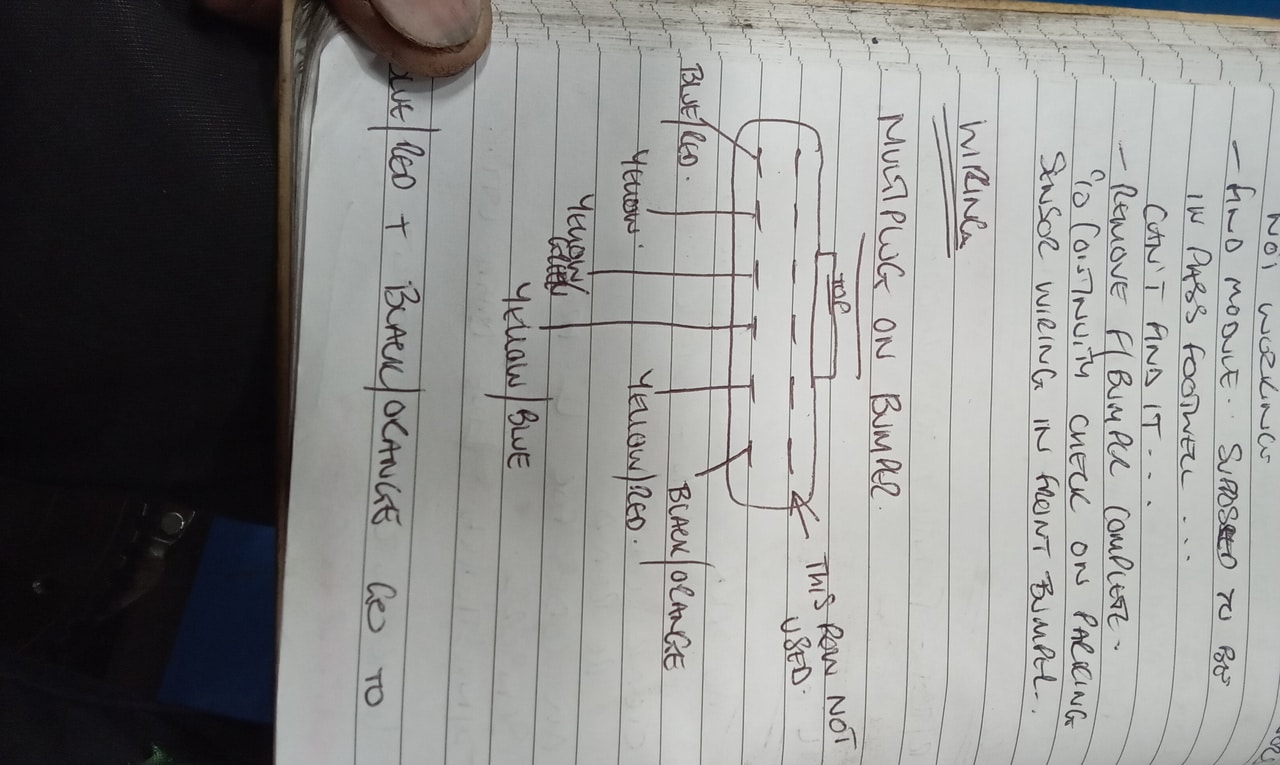 NOT WORKING
- FIND MODULE. SUPPOSED TO BE
IN PASS FOOTWELL ...
CAN'T FIND IT ...
- REMOVE F/BUMPER COMPLETE.
C/O CONTINUITY CHECK ON PARKING
SENSOR WIRING IN FRONT BUMPER..
WIRING
MULTIPLUG ON BUMPER.
TOP
THIS ROW NOT
USED.
BLUE/RED.
BLACK/ORANGE
YELLOW.
YELLOW/RED.
YELLOW/
GREEN
YELLOW/BLUE
BLUE/RED + BLACK/ORANGE GO TO